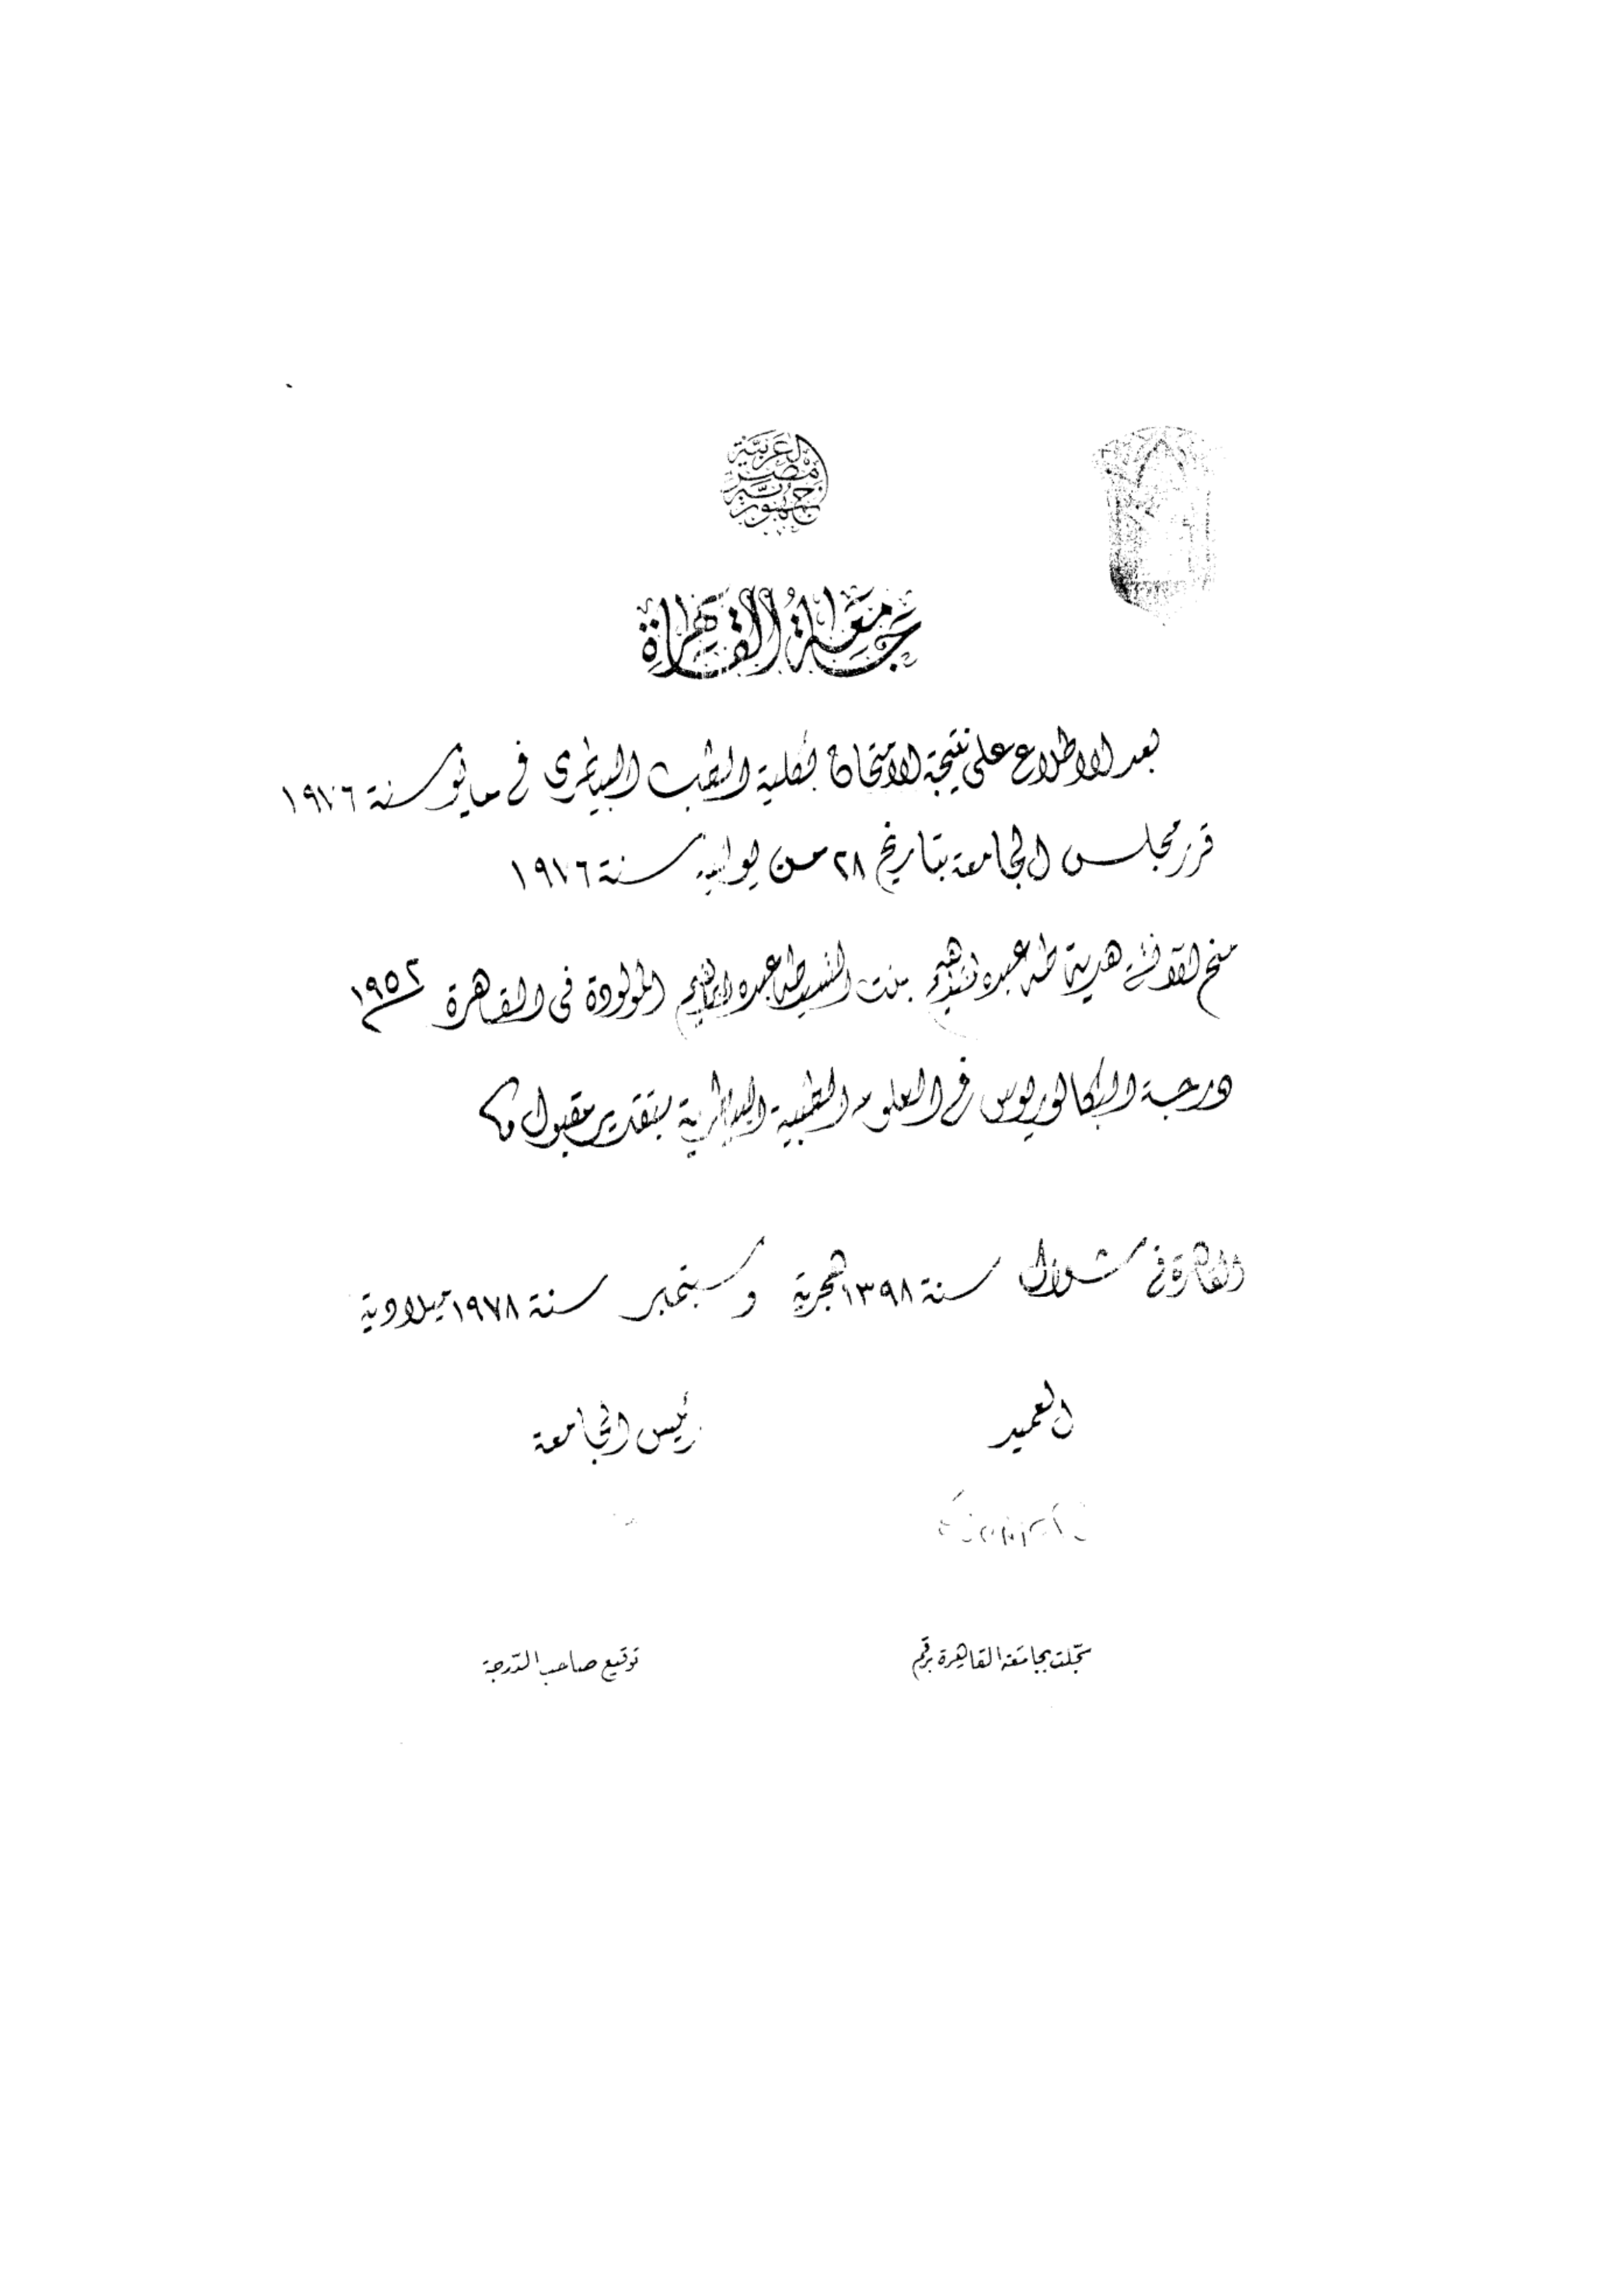 جمهورية
مصر
العربية
جامعة القاهرة
بعد الاطلاع على نتيجة الامتحان لكلية الطب البيطرى فى مايو سنة ١٩٧٦
قرر مجلس الجامعة بتاريخ ٢٨ من يوليه سنة ١٩٧٦
منح الآنسة هدية طه عبده بنت السيد طه عبده المولودة فى القاهرة ١٩٥٢
درجة البكالوريوس فى العلوم الطبية البيطرية بتقدير مقبول
القاهرة فى شوال سنة ١٣٩٨ هجرية و سبتمبر سنة ١٩٧٨ ميلادية
العميد
رئيس الجامعة
سجلت بجامعة القاهرة برقم
توقيع صاحب الدرجة